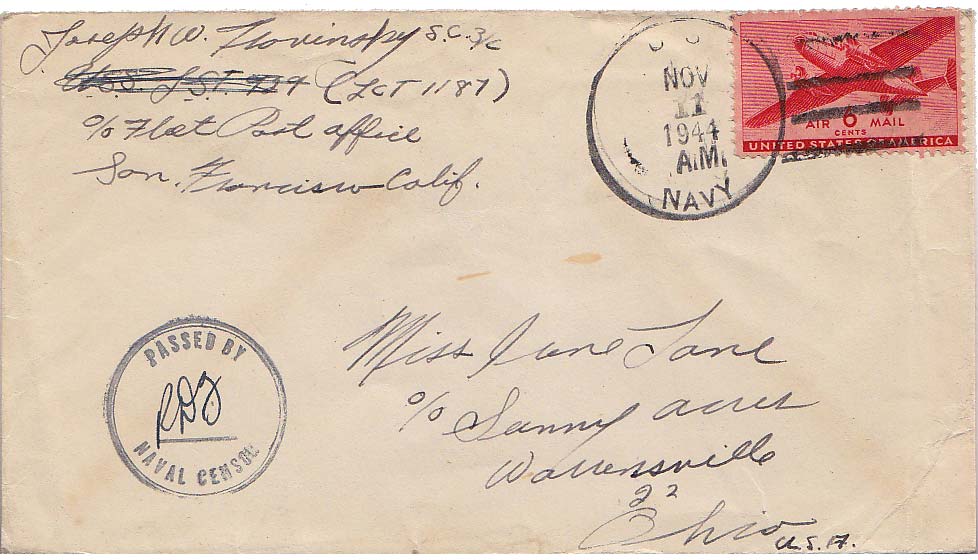 Joseph W. Trovinsky S.C. 3/c
U.S.S. LST (LCT 1187)
c/o Fleet Post Office
San. Francisco Calif.
NOV
11
1944
A.M.
NAVY
AIR 6 MAIL
CENTS
UNITED STATES OF AMERICA
PASSED BY
RDZ
NAVAL CENSOR
Miss June Lane
c/o Sunny acres
Warrensville
22
Ohio
U.S.A.